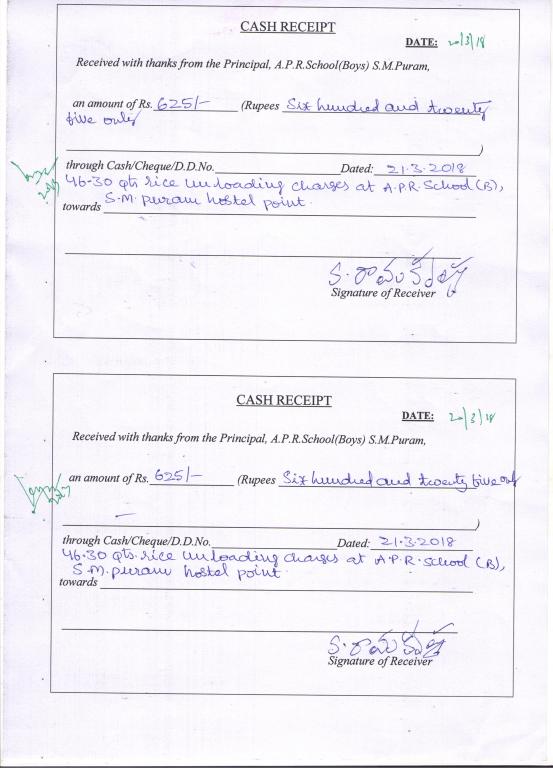 CASH RECEIPT
DATE: 20/3/18
Received with thanks from the Principal, A.P.R.School(Boys) S.M.Puram,
an amount of Rs. 625/- (Rupees Six hundred and twenty
five only
)
through Cash/Cheque/D.D.No. Dated: 21.3.2018
46-30 qts rice unloading charges at A.P.R. School (B),
towards S.M. puram hostel point.
Signature of Receiver
CASH RECEIPT
DATE: 20/3/18
Received with thanks from the Principal, A.P.R.School(Boys) S.M.Puram,
an amount of Rs. 625/- (Rupees Six hundred and twenty five only
)
through Cash/Cheque/D.D.No. Dated: 21.3.2018
46.30 qts. rice unloading charges at A.P.R. School (B),
S.M. puram hostel point.
towards
Signature of Receiver